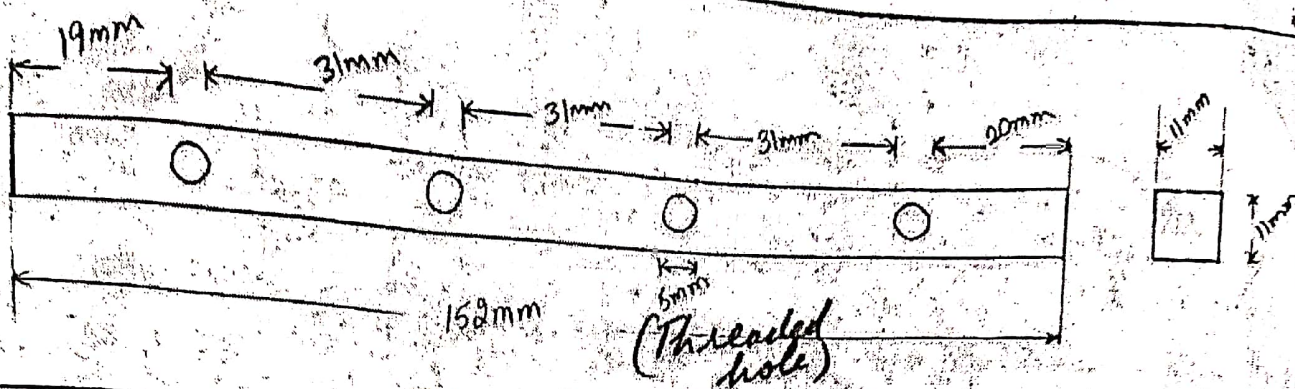 19mm
31mm
31mm
31mm
20mm
11mm
11mm
5mm
152mm
(Threaded
hole)